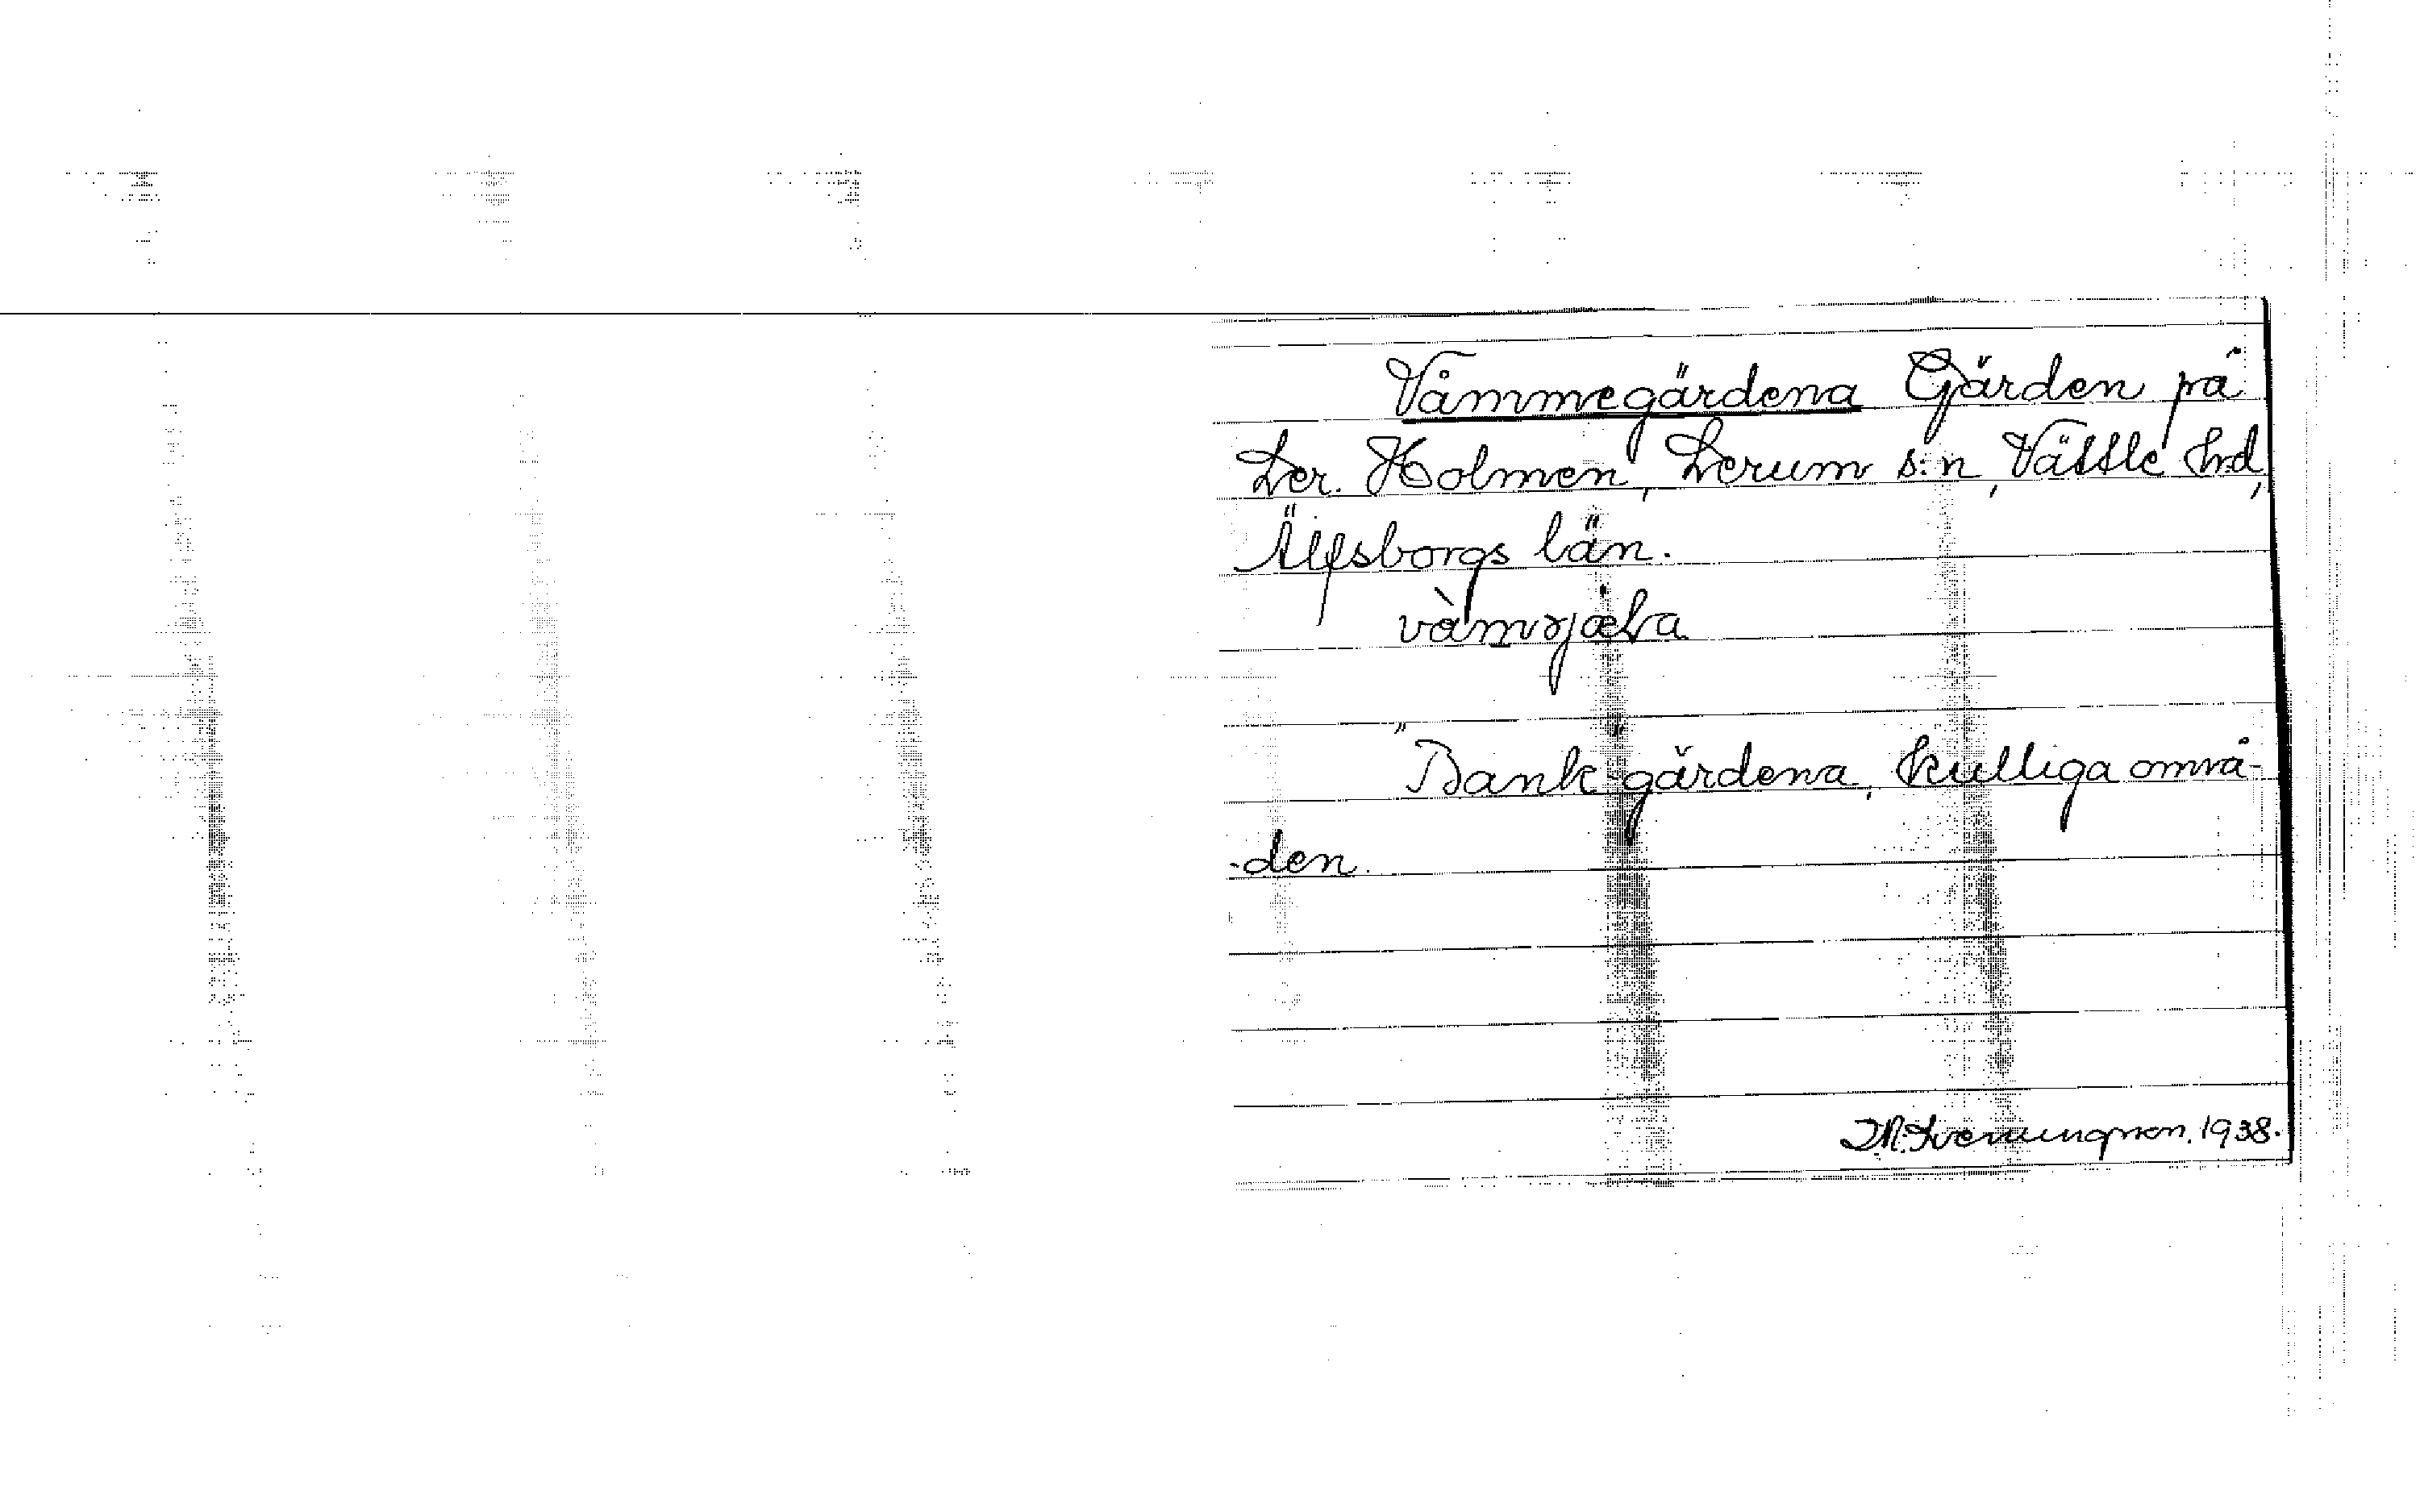 Våmmegärdena Gärden på
Ler. Holmen, Lerum s:n, Vättle hd,
Älfsborgs län.
"Bank-gärdena, kulliga områ-
-den.
1938.